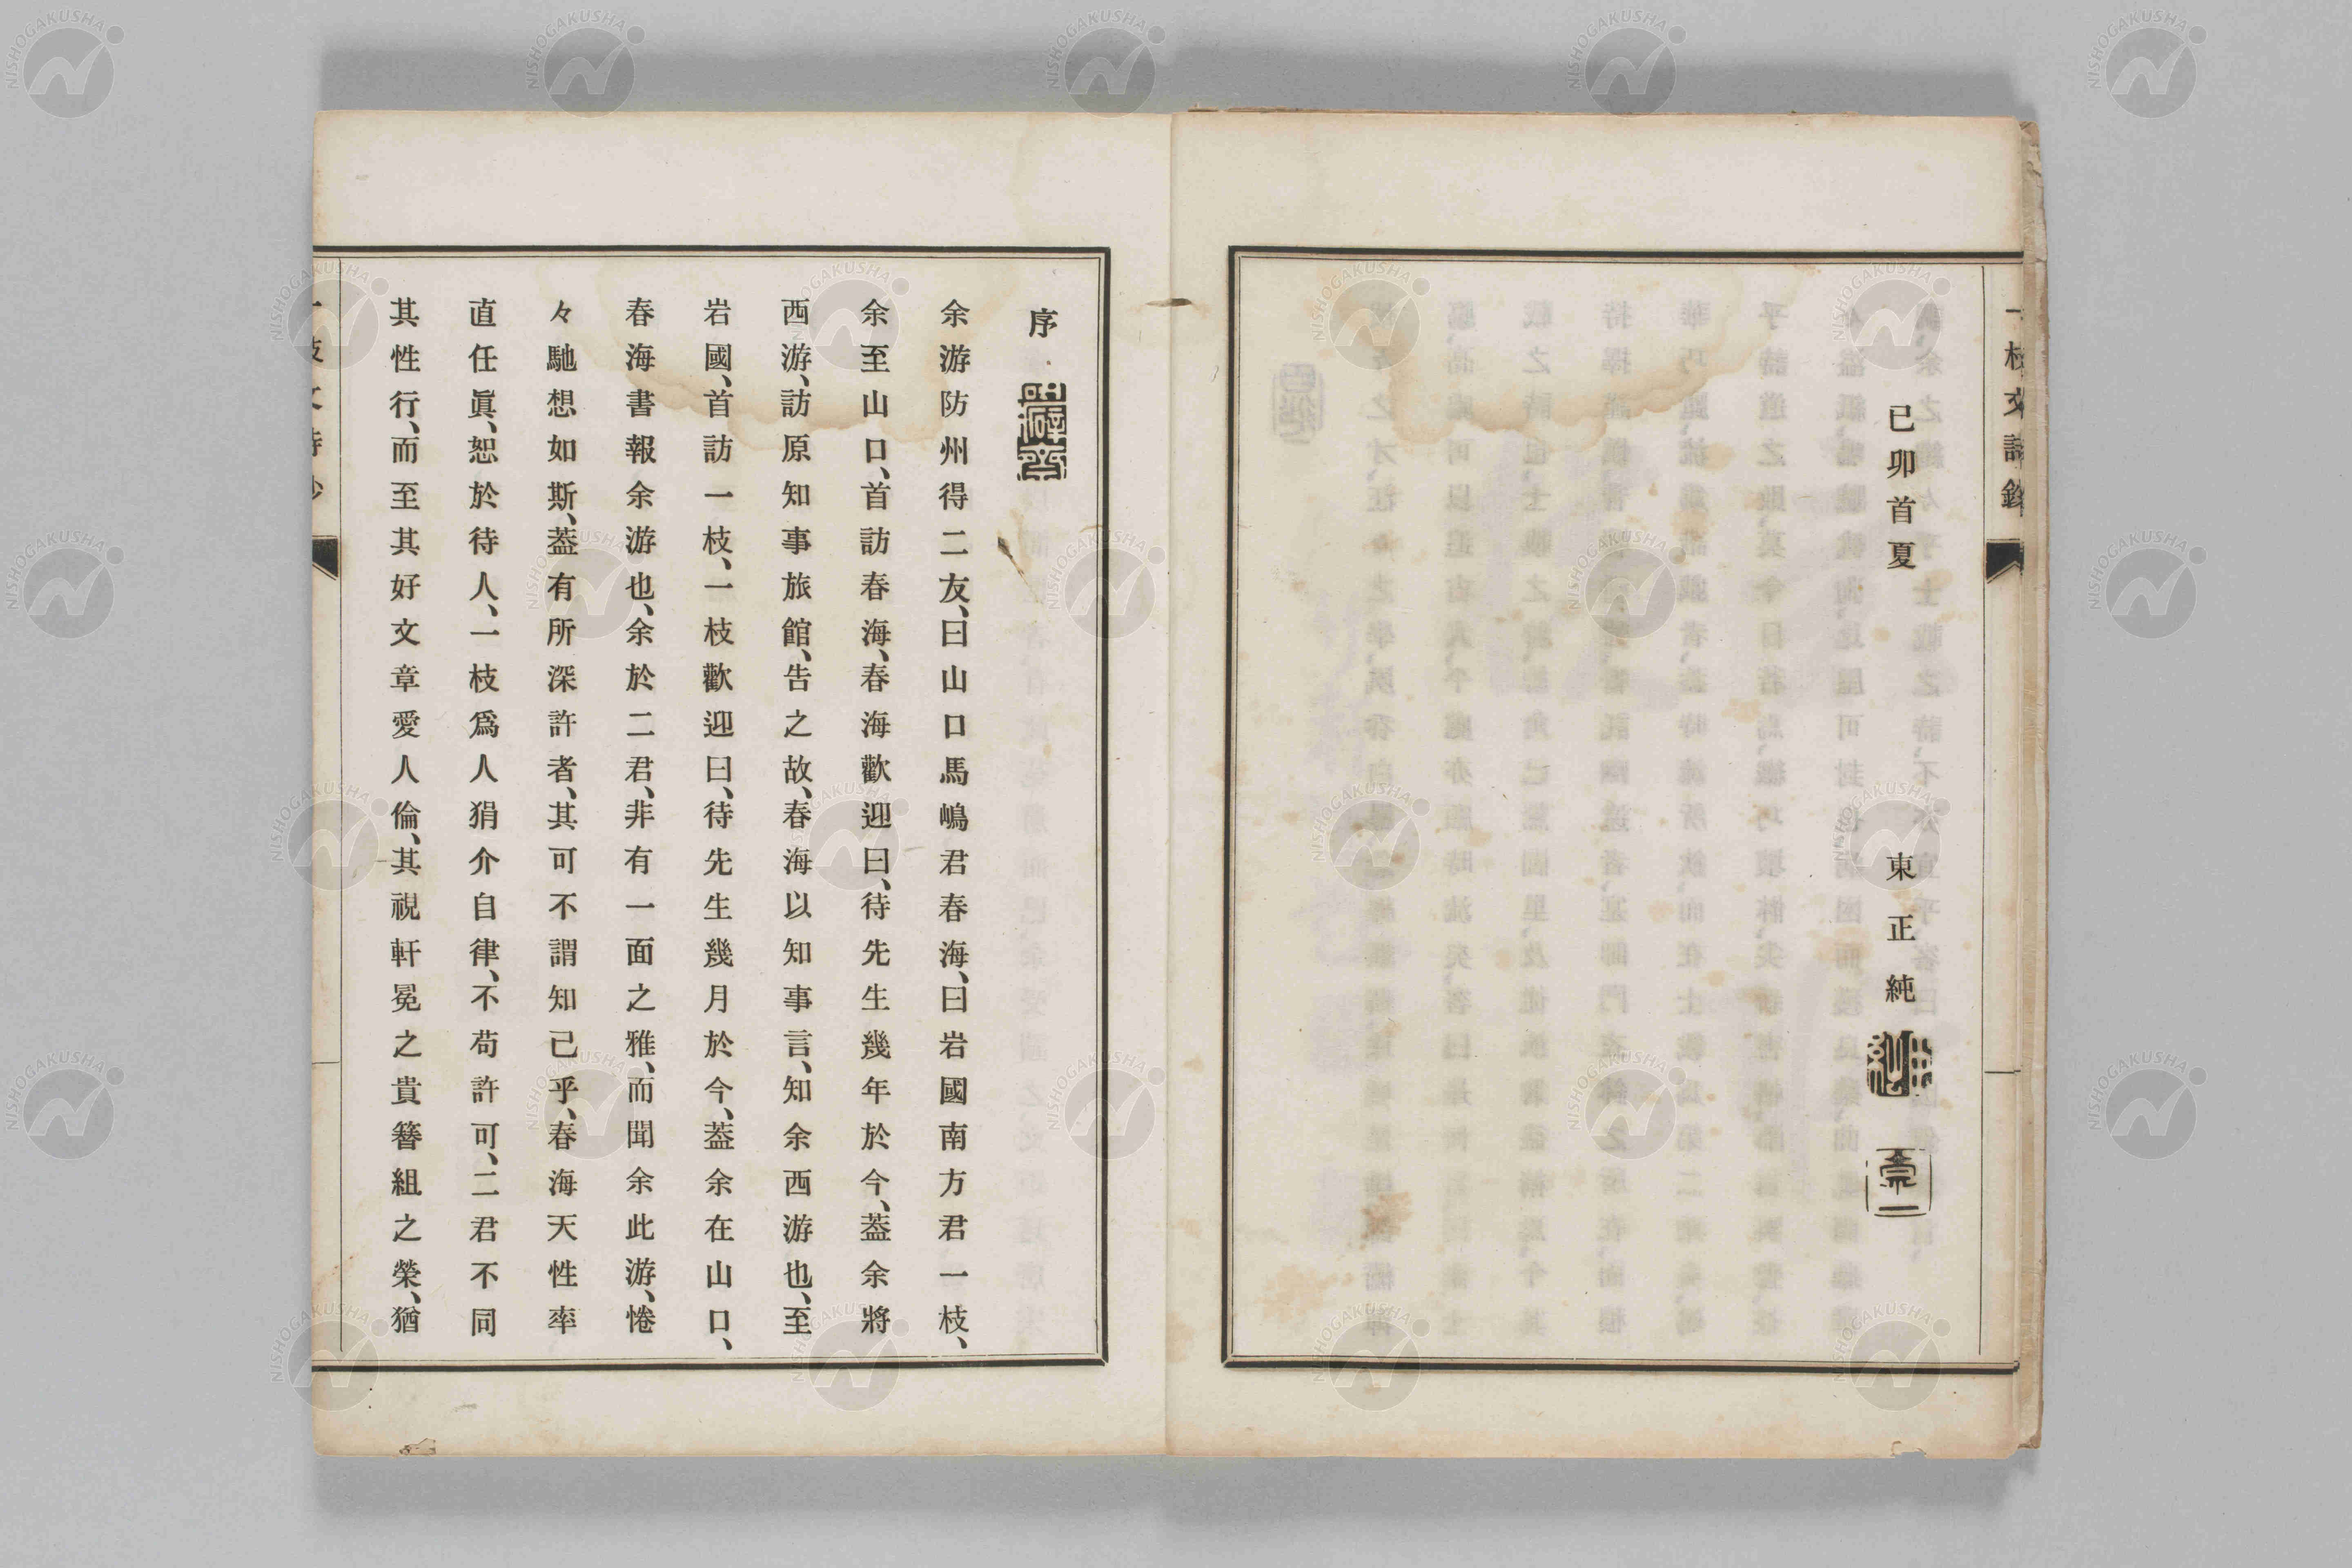 己卯首夏　東正純
序
余游防州得二友、曰山口馬嶋君春海、曰岩國南方君一枝、
余至山口、首訪春海、春海歡迎曰、待先生幾年於今、葢余將
西游、訪原知事旅館、告之故、春海以知事言、知余西游也、至
岩國、首訪一枝、一枝歡迎曰、待先生幾月於今、葢余在山口、
春海書報余游也、余於二君、非有一面之雅、而聞余此游、惓
々馳想如斯、葢有所深許者、其可不謂知己乎、春海天性率
直任眞、恕於待人、一枝爲人狷介自律、不苟許可、二君不同
其性行、而至其好文章愛人倫、其視軒冕之貴簪組之榮、猶
NISHOGAKUSHA